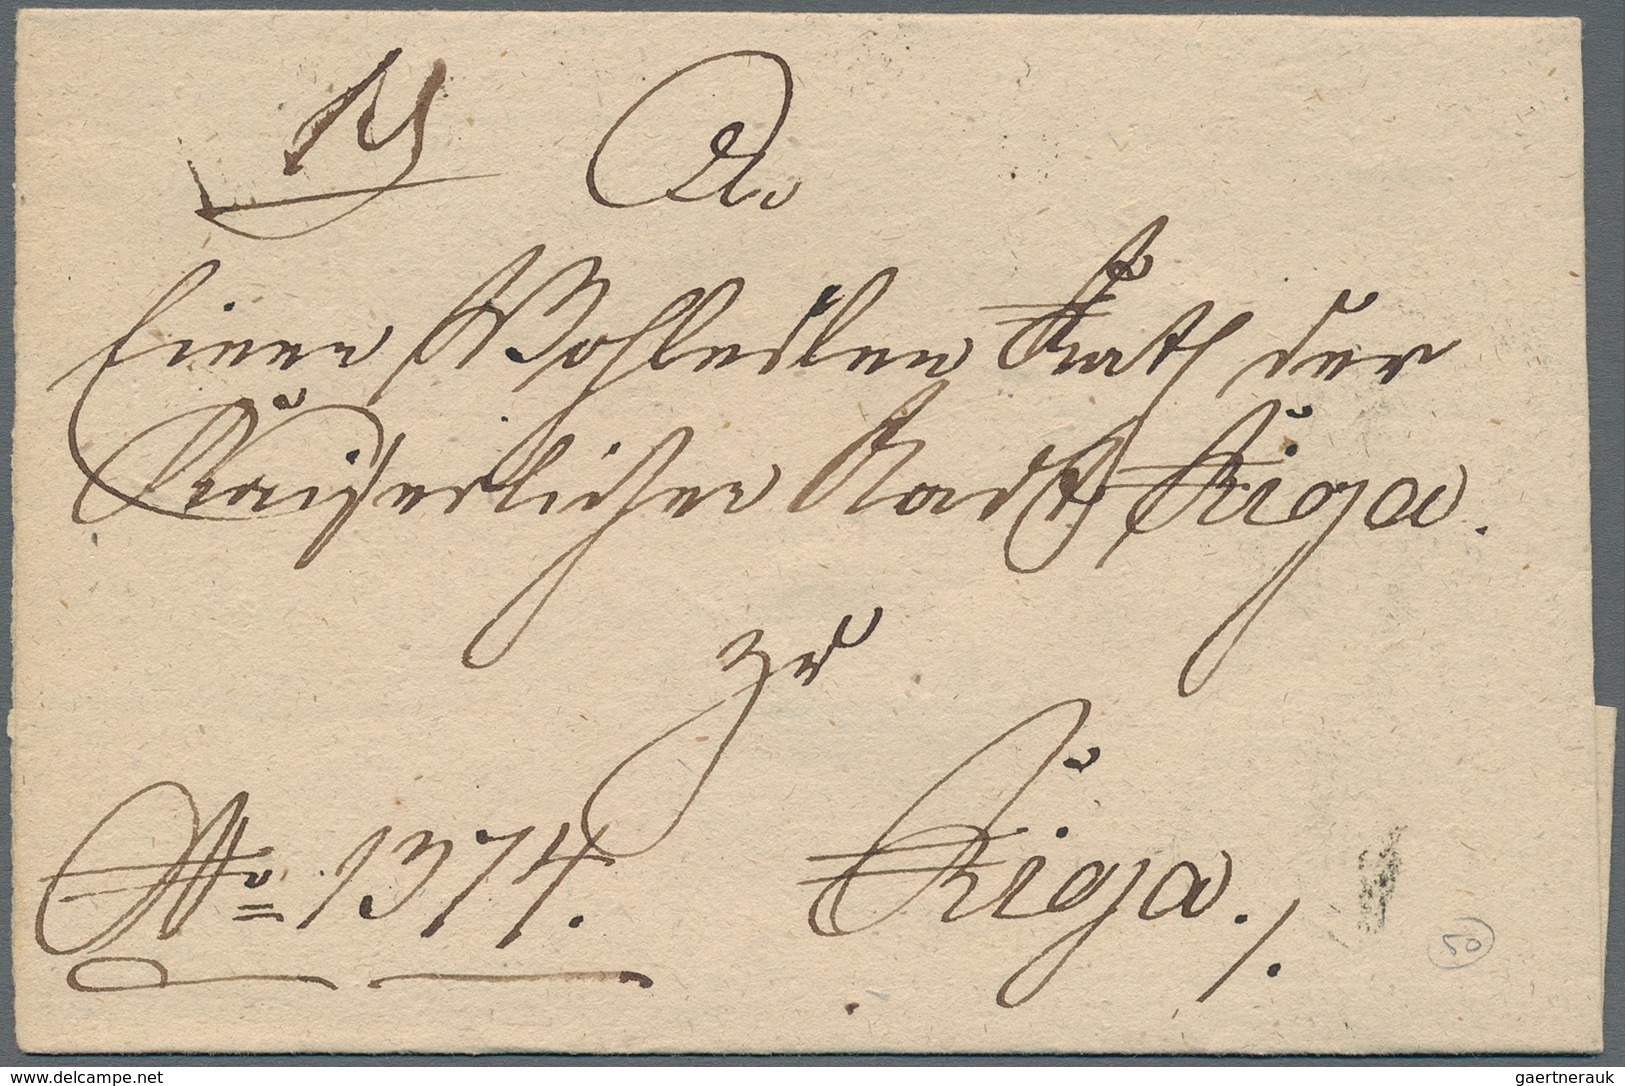 An
Einen Wohledlen Rath der
Kaiserlichen Stadt Riga.
zu
Riga./.
No 1374.
50
www.delcampe.net
gaertnerauk